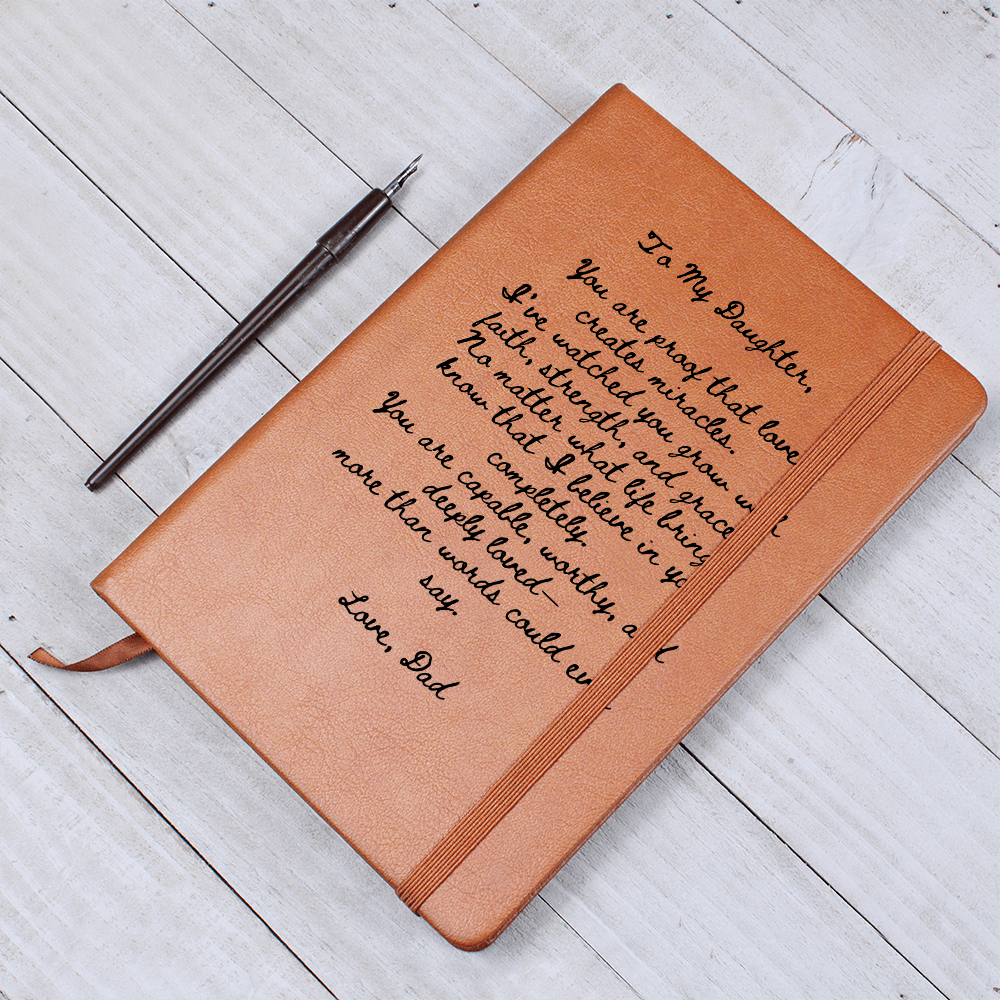 To My Daughter,
You are proof that love
creates miracles.
I've watched you grow with
faith, strength, and grace
No matter what life bring
know that I believe in yo
completely.
You are capable, worthy, a d
deeply loved—
more than words could ev
say.
Love, Dad